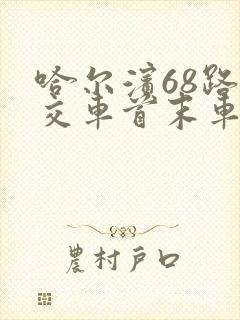 哈尔滨68路
交车首末车
農村戶口